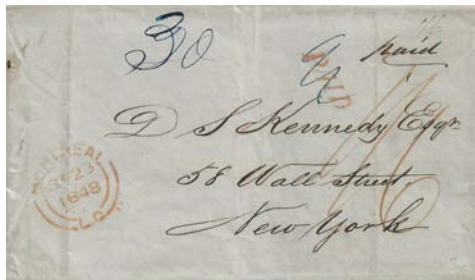 30
paid
PAID
D S Kennedy Esqr
58 Wall Street
New York
MONTREAL
23
1848
L.C.